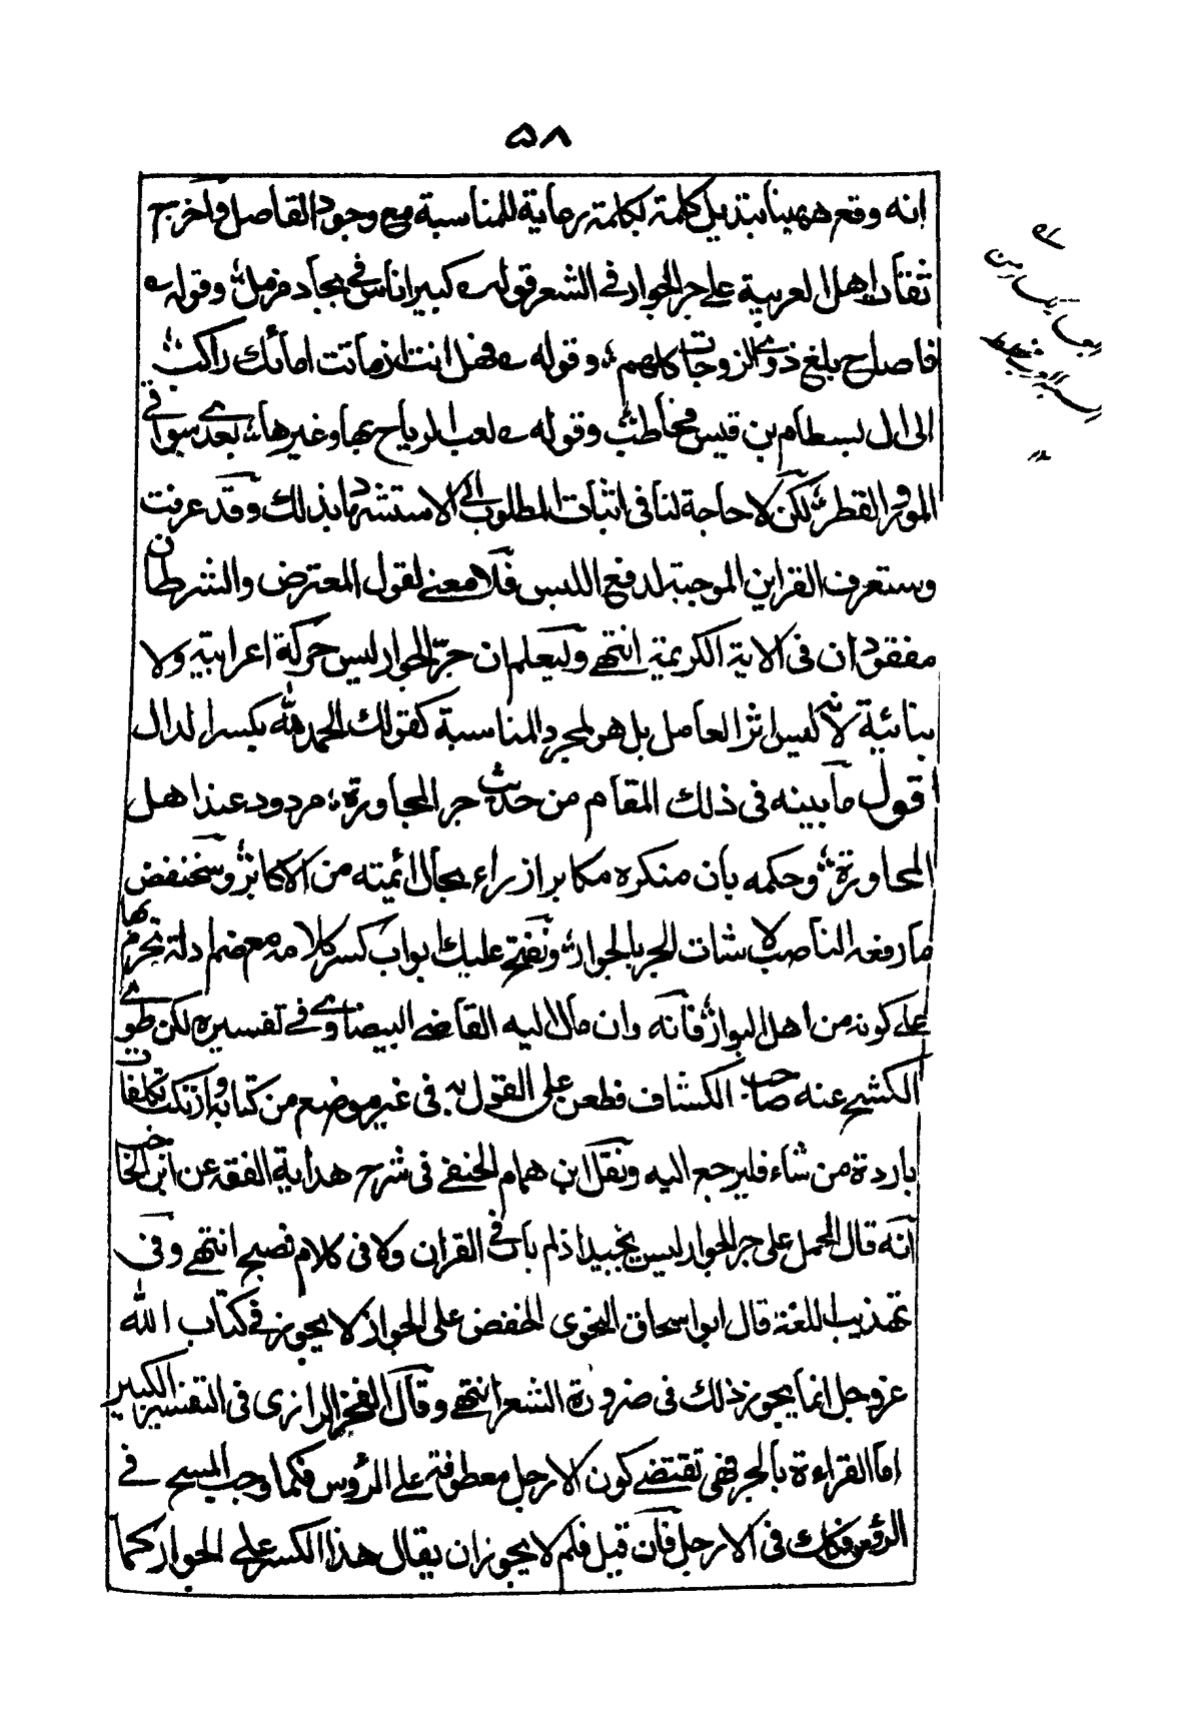 ۵۸
انه وقع ههينا تبديل كلمة بكلمة رعاية للمناسبة مع وجود الفاصل واخرج
ثقات اهل العربية على جر الجوار في الشعر قوله كبير اناس في بجاد مزمل وقوله
فاصاح بلغ ذوي الزوجات كلهم وقوله فهل انت ان ماتت اتانك راكب
الى ال بسطام بن قيس فخاطب وقوله لعب الرياح بها وغيرها بعدي سوافي
المور والقطر لكن لا حاجة لنا في اثبات المطلوب الى الاستشهاد بذلك وقد عرفت
وستعرف القراين الموجبة لدفع اللبس فلا معنى لقول المعترض والشرطان
مفقودان في الاية الكريمة انتهى وليعلم ان جر الجوار ليس حركة اعرابية ولا
بنائية لانه ليس اثر العامل بل هو لمجرد المناسبة كقولك الحمد لله بكسر الدال
اقول ما بينه في ذلك المقام من حديث جر المجاورة مردود عند اهل
المحاورة وحكمه بان منكره مكابر ازراء بحال ائمته من الاكابر وسنخفض
ما رفعه الناصب لاثبات الجر بالجوار ونفتح عليك ابواب كسر كلامه مع ضم ادلة نجزم بها
على كونه من اهل البوار فانه وان مال اليه القاضي البيضاوي في تفسيره لكن طوى
الكشح عنه صاحب الكشاف فطعن على القول به في غير موضع من كتابه وارتكب تكلفات
باردة من شاء فليرجع اليه ونقل ابن همام الحنفي في شرح هداية الفقه عن ابن الحاجب
انه قال الحمل على جر الجوار ليس بجيد اذ لم يات في القران ولا في كلام فصيح انتهى وفي
تهذيب اللغة قال ابو اسحاق النحوي الخفض على الجوار لا يجوز في كتاب الله
عز وجل انما يجوز ذلك في ضرورة الشعر انتهى وقال الفخر الرازي في التفسير الكبير
اما القراءة بالجر فهي تقتضي كون الارجل معطوفة على الرؤس فكما وجب المسح في
الرؤس فكذلك في الارجل فان قيل فلم لا يجوز ان يقال هذا الكسر على الجوار كما